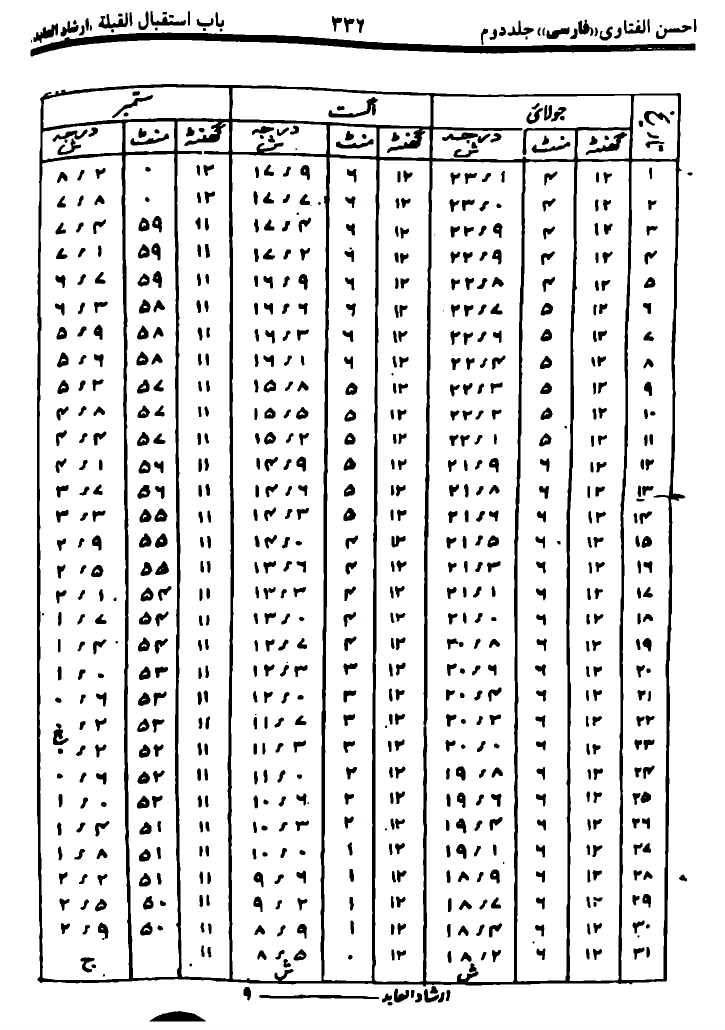 احسن الفتاویٰ ((فارسی)) جلد دوم ۳۳۶ باب استقبال القبلة ,ارشاد العابد,
تاریخ جولائی اگست ستمبر
گھنٹہ منٹ درجہ ش گھنٹہ منٹ درجہ ش گھنٹہ منٹ درجہ ش
۱ ۱۲ ۴ ۲۳ء۱ ۱۲ ۶ ۱۷ء۹ ۱۲ ۰ ۸ء۲
۲ ۱۲ ۴ ۲۳ء۰ ۱۲ ۶ ۱۷ء۷ ۱۲ ۰ ۷ء۸
۳ ۱۲ ۴ ۲۲ء۹ ۱۲ ۶ ۱۷ء۴ ۱۱ ۵۹ ۷ء۴
۴ ۱۲ ۴ ۲۲ء۹ ۱۲ ۶ ۱۷ء۲ ۱۱ ۵۹ ۷ء۱
۵ ۱۲ ۴ ۲۲ء۸ ۱۲ ۶ ۱۶ء۹ ۱۱ ۵۹ ۶ء۷
۶ ۱۲ ۵ ۲۲ء۷ ۱۲ ۶ ۱۶ء۶ ۱۱ ۵۸ ۶ء۳
۷ ۱۲ ۵ ۲۲ء۶ ۱۲ ۶ ۱۶ء۳ ۱۱ ۵۸ ۵ء۹
۸ ۱۲ ۵ ۲۲ء۴ ۱۲ ۶ ۱۶ء۱ ۱۱ ۵۸ ۵ء۶
۹ ۱۲ ۵ ۲۲ء۳ ۱۲ ۵ ۱۵ء۸ ۱۱ ۵۷ ۵ء۲
۱۰ ۱۲ ۵ ۲۲ء۲ ۱۲ ۵ ۱۵ء۵ ۱۱ ۵۷ ۴ء۸
۱۱ ۱۲ ۵ ۲۲ء۱ ۱۲ ۵ ۱۵ء۲ ۱۱ ۵۷ ۴ء۴
۱۲ ۱۲ ۶ ۲۱ء۹ ۱۲ ۵ ۱۴ء۹ ۱۱ ۵۶ ۴ء۱
۱۳ ۱۲ ۶ ۲۱ء۸ ۱۲ ۵ ۱۴ء۶ ۱۱ ۵۶ ۳ء۷
۱۴ ۱۲ ۶ ۲۱ء۶ ۱۲ ۵ ۱۴ء۳ ۱۱ ۵۵ ۳ء۳
۱۵ ۱۲ ۶ ۲۱ء۵ ۱۲ ۴ ۱۴ء۰ ۱۱ ۵۵ ۲ء۹
۱۶ ۱۲ ۶ ۲۱ء۳ ۱۲ ۴ ۱۳ء۶ ۱۱ ۵۵ ۲ء۵
۱۷ ۱۲ ۶ ۲۱ء۱ ۱۲ ۴ ۱۳ء۳ ۱۱ ۵۴ ۲ء۱
۱۸ ۱۲ ۶ ۲۱ء۰ ۱۲ ۴ ۱۳ء۰ ۱۱ ۵۴ ۱ء۷
۱۹ ۱۲ ۶ ۲۰ء۸ ۱۲ ۴ ۱۲ء۷ ۱۱ ۵۴ ۱ء۴
۲۰ ۱۲ ۶ ۲۰ء۶ ۱۲ ۳ ۱۲ء۳ ۱۱ ۵۳ ۱ء۰
۲۱ ۱۲ ۶ ۲۰ء۴ ۱۲ ۳ ۱۲ء۰ ۱۱ ۵۳ ۰ء۶
۲۲ ۱۲ ۶ ۲۰ء۲ ۱۲ ۳ ۱۱ء۷ ۱۱ ۵۳ ۰ء۲
۲۳ ۱۲ ۶ ۲۰ء۰ ۱۲ ۳ ۱۱ء۳ ۱۱ ۵۲ ۰ء۲
۲۴ ۱۲ ۶ ۱۹ء۸ ۱۲ ۲ ۱۱ء۰ ۱۱ ۵۲ ۰ء۶
۲۵ ۱۲ ۶ ۱۹ء۶ ۱۲ ۲ ۱۰ء۶ ۱۱ ۵۲ ۱ء۰
۲۶ ۱۲ ۶ ۱۹ء۴ ۱۲ ۲ ۱۰ء۳ ۱۱ ۵۱ ۱ء۴
۲۷ ۱۲ ۶ ۱۹ء۱ ۱۲ ۱ ۱۰ء۰ ۱۱ ۵۱ ۱ء۸
۲۸ ۱۲ ۶ ۱۸ء۹ ۱۲ ۱ ۹ء۶ ۱۱ ۵۱ ۲ء۲
۲۹ ۱۲ ۶ ۱۸ء۷ ۱۲ ۱ ۹ء۲ ۱۱ ۵۰ ۲ء۵
۳۰ ۱۲ ۶ ۱۸ء۴ ۱۲ ۱ ۸ء۹ ۱۱ ۵۰ ۲ء۹
۳۱ ۱۲ ۶ ۱۸ء۲ ۱۲ ۰ ۸ء۵ ۱۱
ش ش ج
ارشاد العابد ــــــ ۹